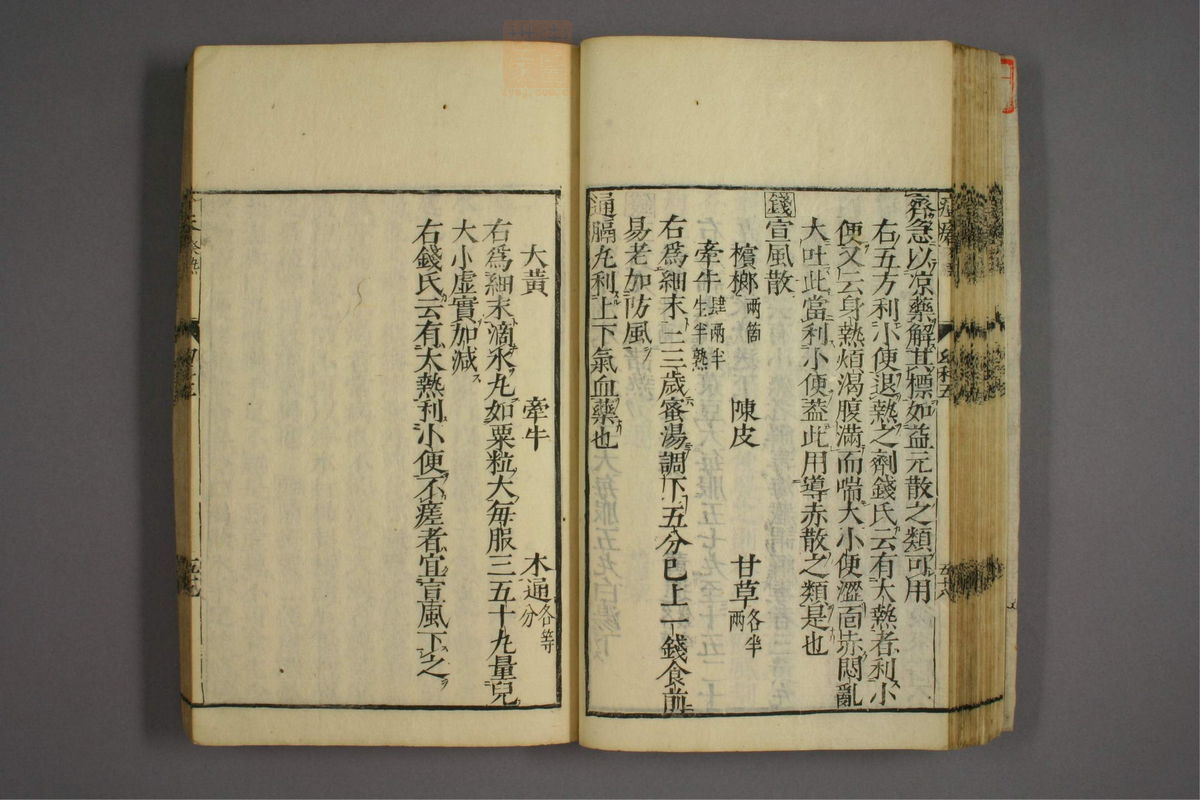 齊急以凉藥解其標如益元散之類可用
右五方利小便退熱之劑錢氏云有大熱者利小
便又云身熱煩渴腹滿而喘大小便澀面赤悶亂
大吐此當利小便葢此用導赤散之類是也
錢宣風散
檳榔兩箇 陳皮 甘草各半兩
牽牛肆兩半生半熟
右爲細末二三歲蜜湯調下五分已上一錢食前
易老加防風
通膈丸利上下氣血藥也
大黃 牽牛 木通各等分
右爲細末滴水丸如粟粒大每服三五十丸量兒
大小虛實加减
右錢氏云有大熱利小便不瘥者宜宣風下之